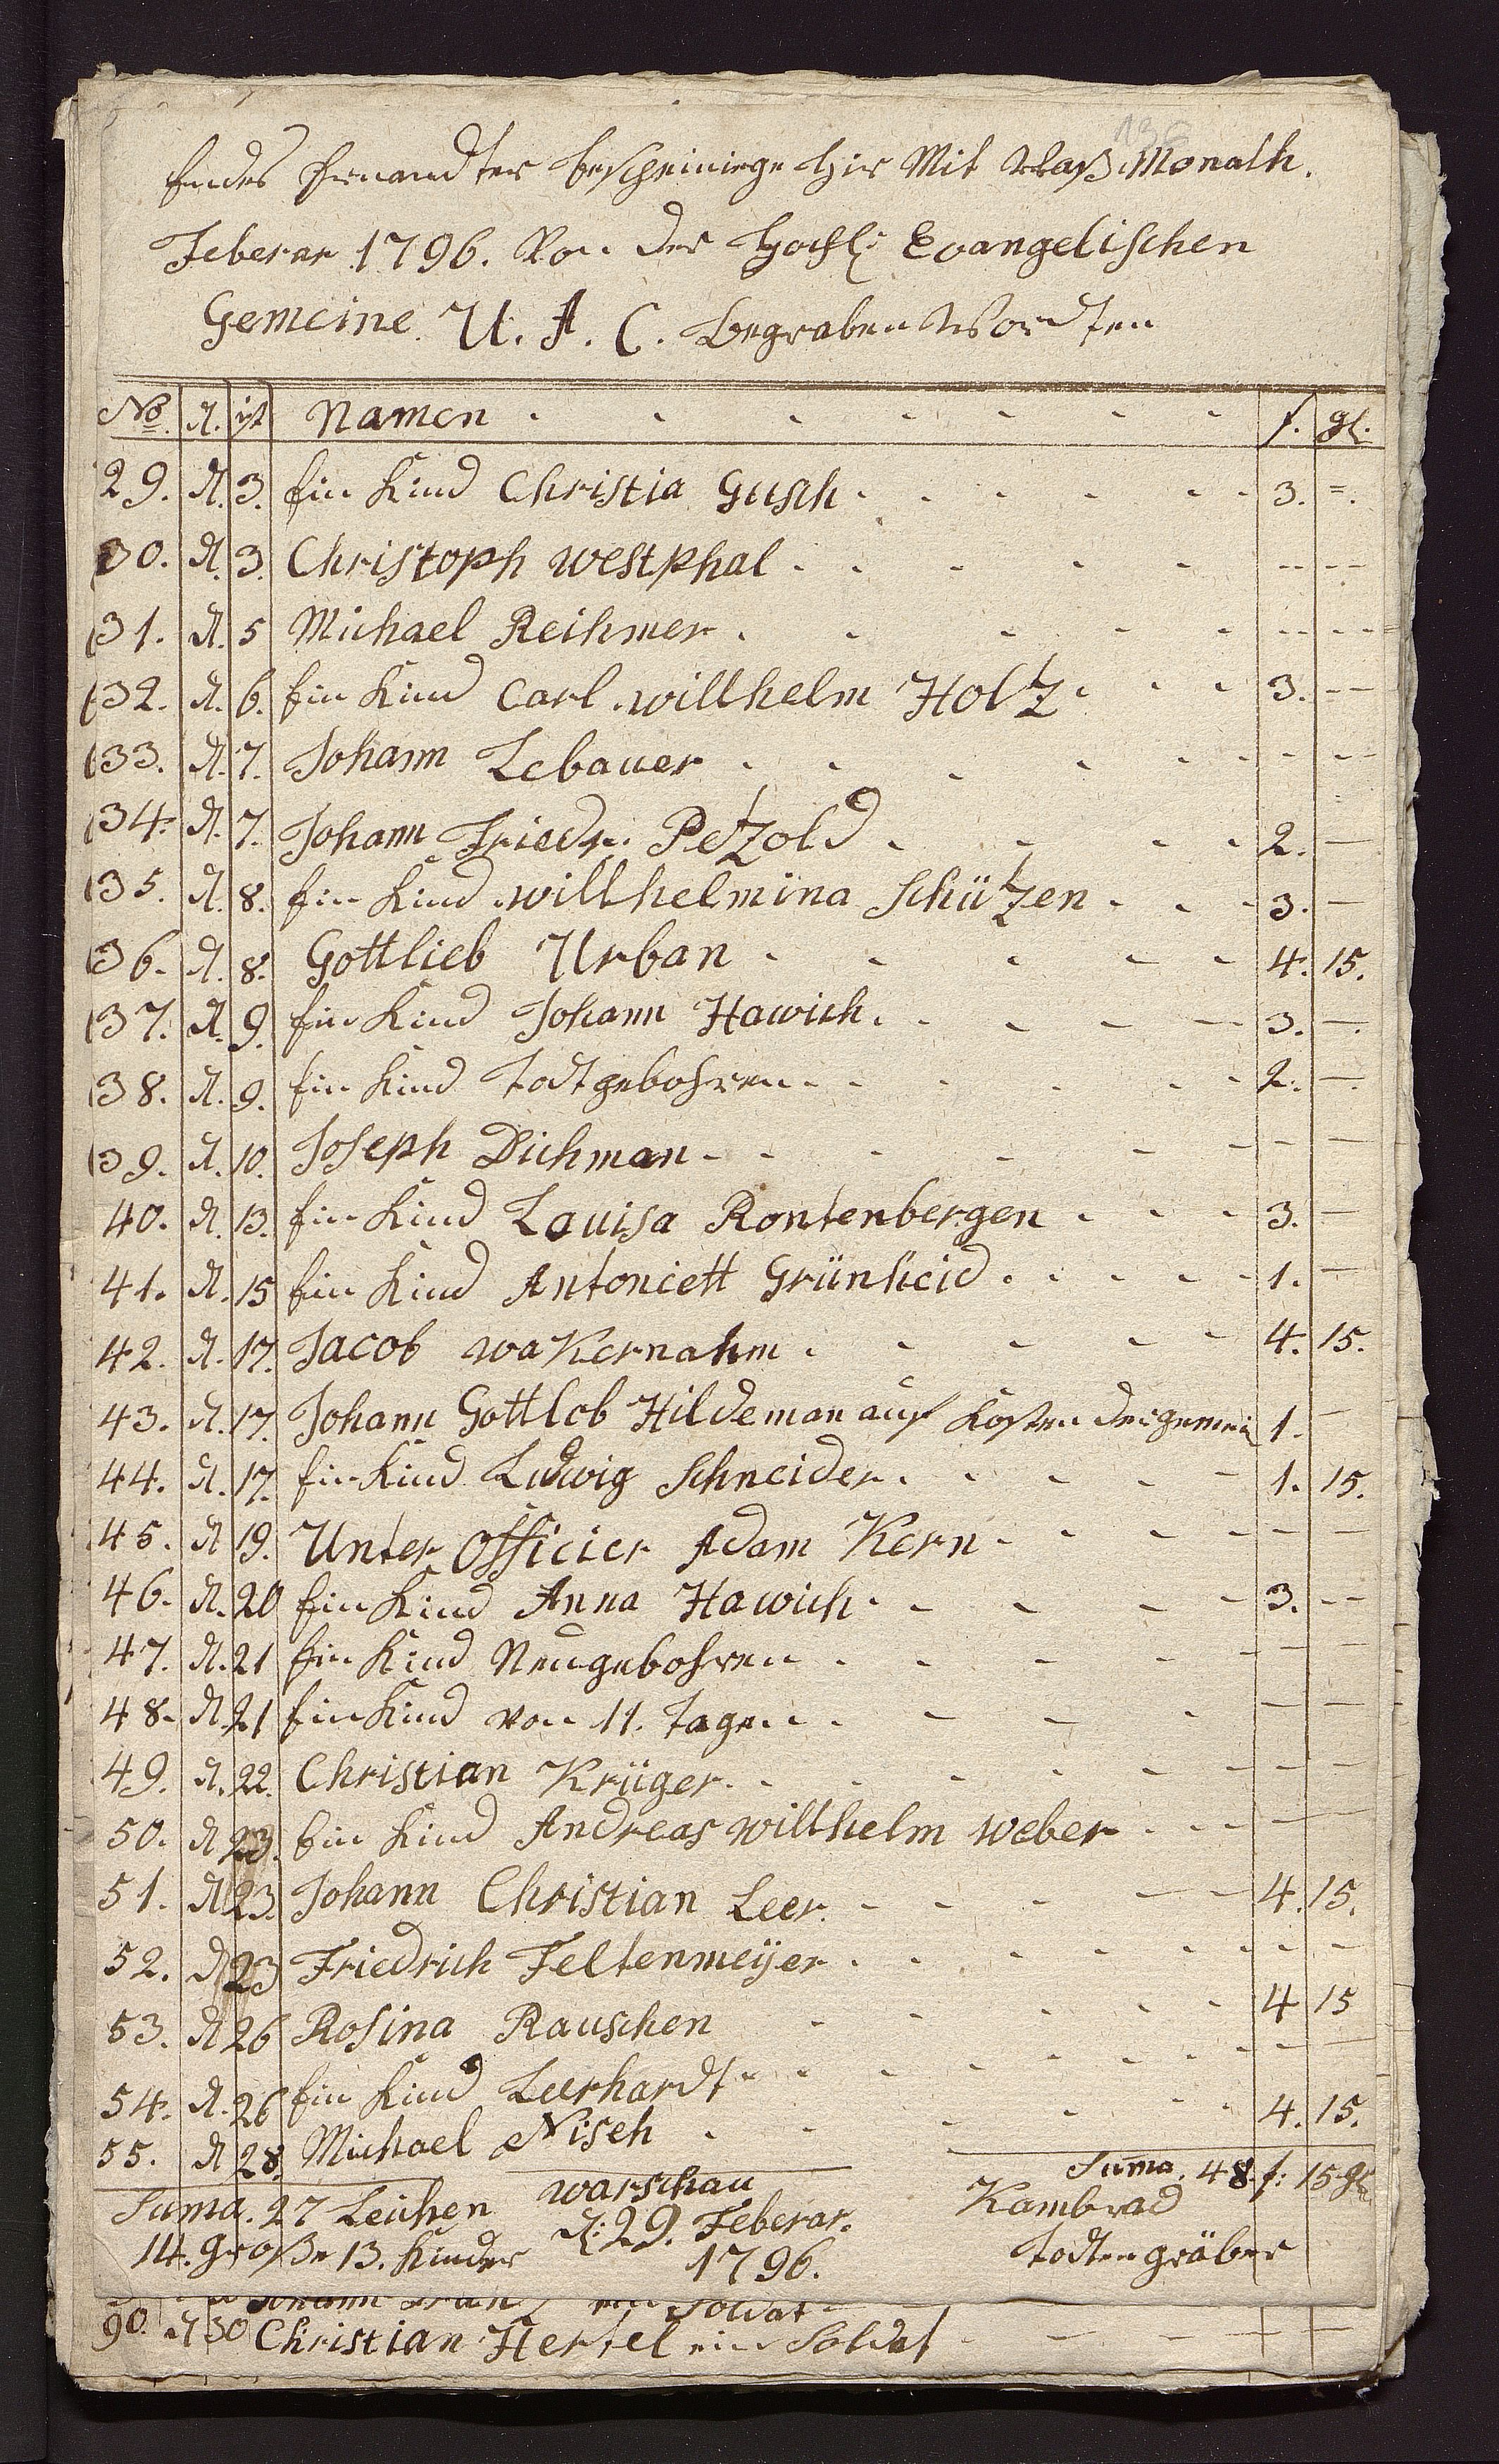 136
Endes Genandter bescheiniege Hir Mit Waß Monath.
Feberar 1796. Von der Hochl: Evangelischen
Gemeine U. A. C. begraben Wordten
No. d. ist Namen - - - - - - - f. gl.
29. d. 3. Ein Kind Christia Gusch - - - - - - 3. =.
30. d. 3. Christoph Westphal - - - - - -- --
31. d. 5 Michael Reihmer - - - - - -- --
32. d. 6. Ein Kind Carl Willhelm Holtz - - - 3. --
33. d. 7. Johann Lebauer - - - - - - - --
34. d. 7. Johann Friedr: Petzold - - - - 2. —
35. d. 8. Ein Kind Willhelmina Schützen - - - 3. —
36. d. 8. Gottlieb Urban - - - - - 4. 15.
37. d. 9. Ein Kind Johann Hawich - - - - - 3. —.
38. d. 9. Ein Kind Todtgebohren - - - - - - 2. —.
39. d. 10. Joseph Dichman - - - - - - - —
40. d. 13. Ein Kind Lauisa Rontenbergen - - - 3. —
41. d. 15 Ein Kind Antoniett Grünheid - - - - - 1. —
42. d. 17. Jacob Wakernahm - - - - - 4. 15.
43. d. 17. Johann Gottlob Hildeman auf Kosten der gemei 1. —
44. d. 17. Ein Kind Ludwig Schneider - - - - - 1. 15.
45. d 19. Unter Officier Adam Kern - - - - - - —
46. d. 20 Ein Kind Anna Hawich - - - - - 3. --
47. d. 21 Ein Kind Neugebohren - - - - - — —
48. d. 21 Ein Kind von 11. Tagen - - - - — —
49. d. 22. Christian Krüger - - - - - - — —
50. d 23. Ein Kind Andreas Willhelm Weber - - - — —
51. d 23. Johann Christian Leer - - - - - 4. 15.
52. d 23 Friedrich Feltenmeÿer - - - - - - - —
53. d 26 Rosina Rauschen - - - - - 4 15
54. d. 26 Ein Kind Leerhardt - - - - - - - - —
55. d 28. Michael Nisch - - - - - 4. 15.
Suma. 48 f: 15 gl
Suma. 27 Leichen Warschau Kambrad
14. Große 13. Kinder d: 29. Feberar. Todtengräber
1796.
Johann ein Soldat
90. d 30 Christian Hertel ein Soldat - — — — —